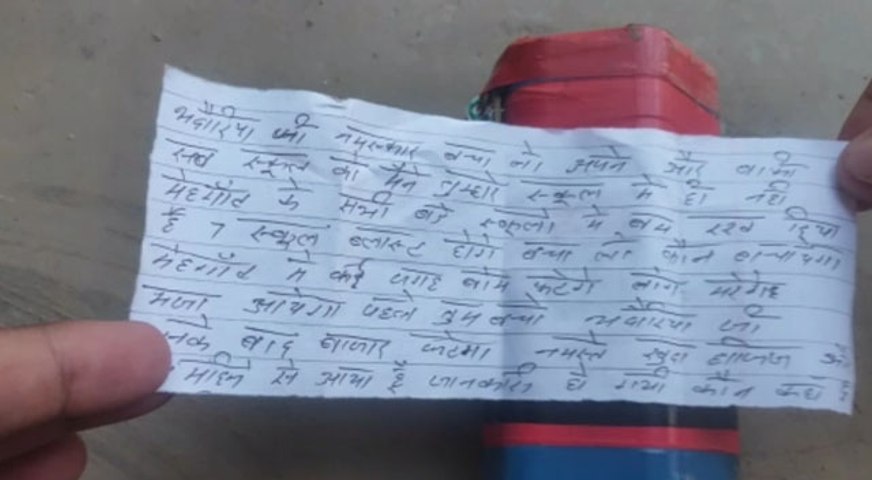 भदौरिया जी नमस्कार बचा लो अपने और बाकी
सब स्कूल को मैंने तुम्हारे स्कूल मे ही नही
मेहगाँव के सभी बडे स्कूलो मे बम रख दिया
है 7 स्कूल ब्लास्ट होगे बचा लो कौन बचायेगा
मेहगाँव मे कई जगह बोम फटेगे लोग मरेगे
मजा आयेगा पहले तुम बचो भदौरिया जी
बाद बाजार फटेगा नमस्ते खुदा हाफिज
से आया है जानकारी हो गयी कौन कहा है